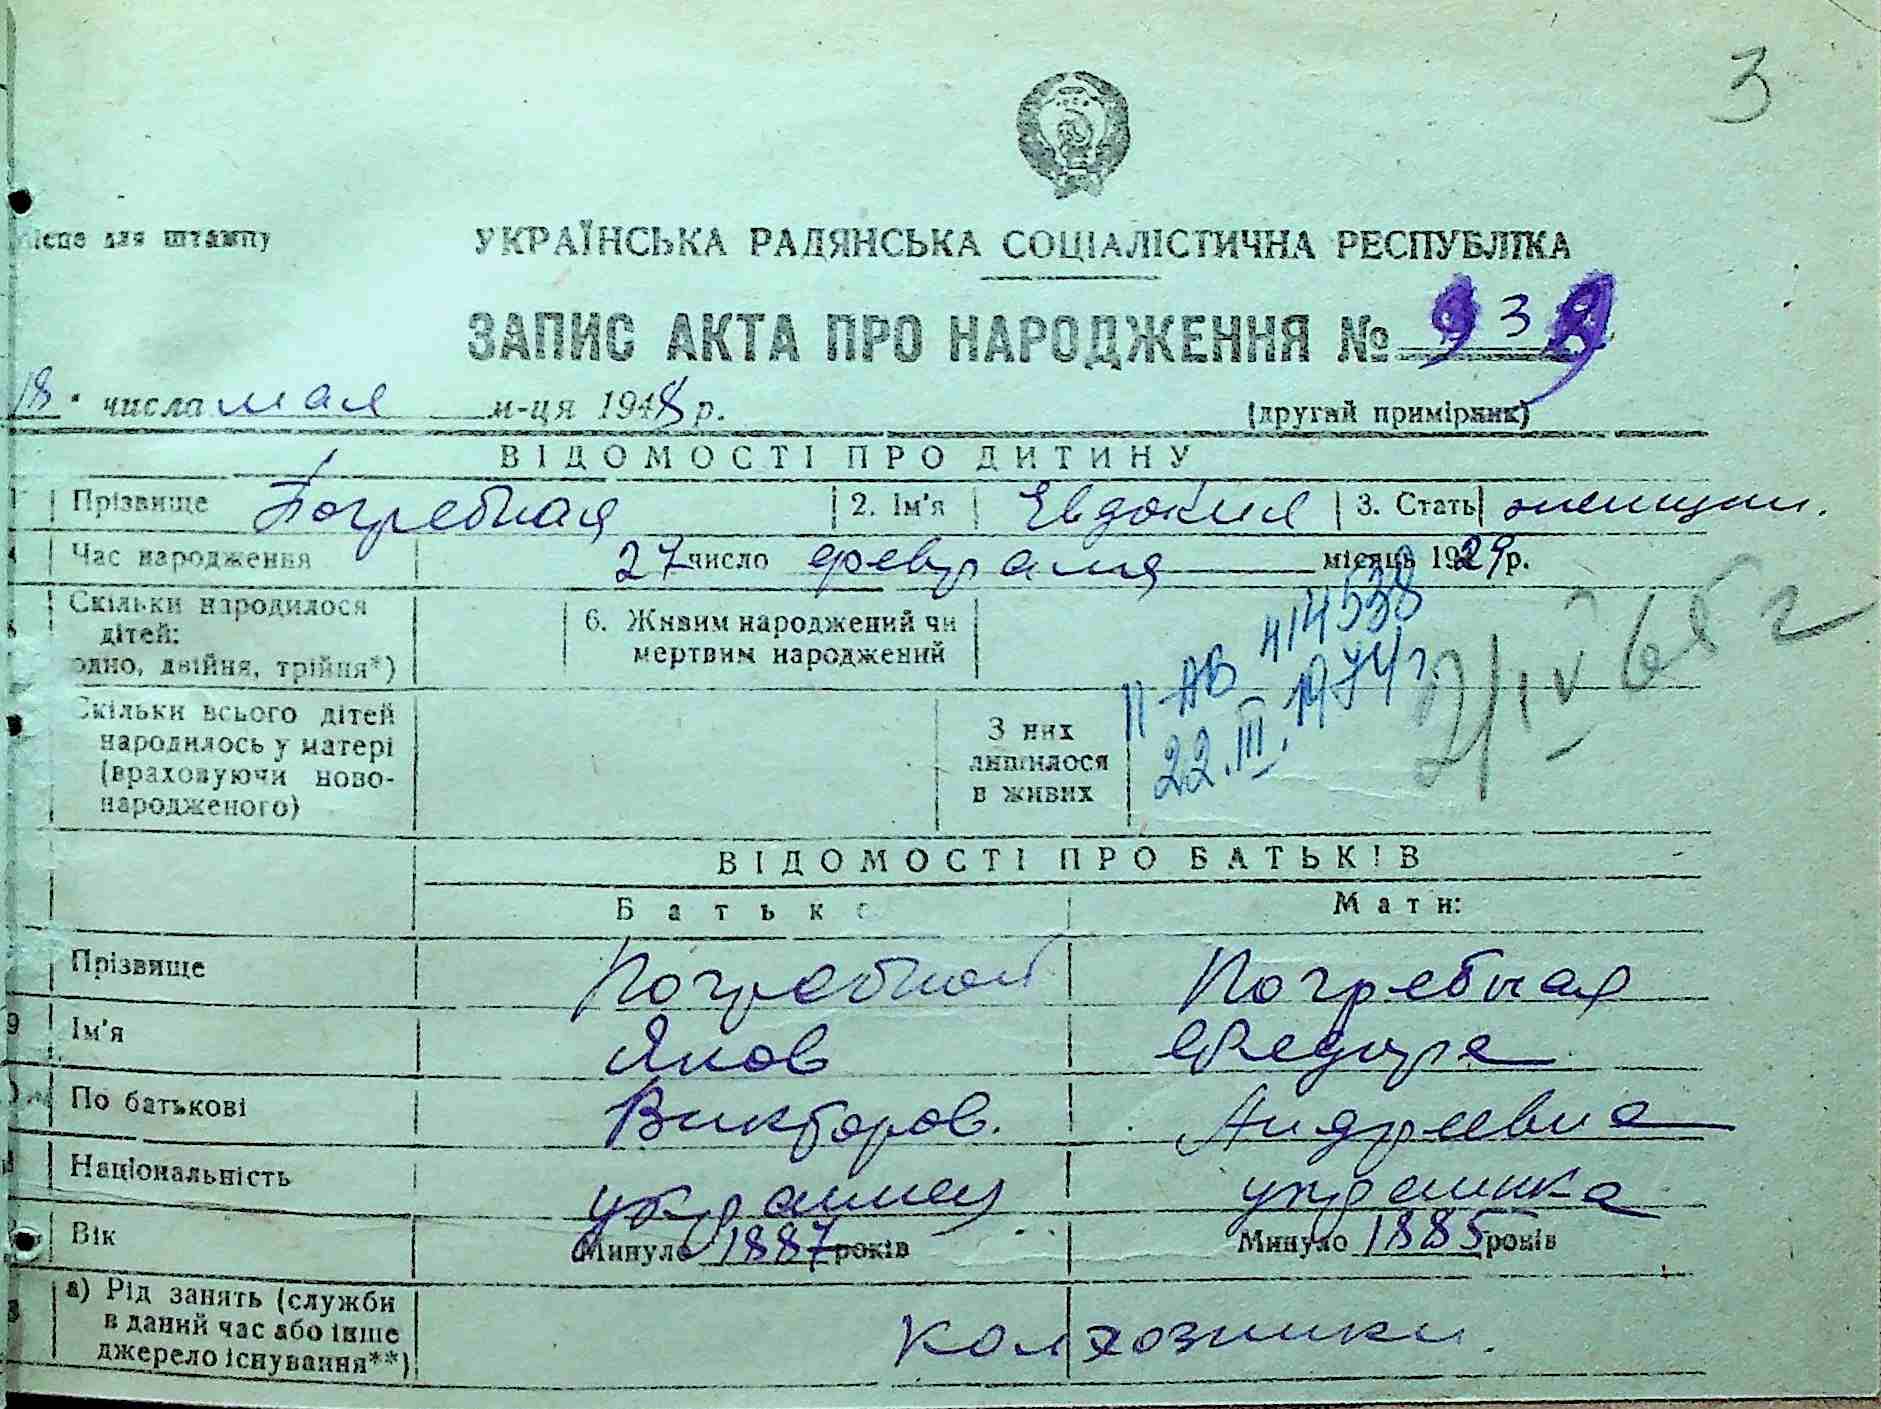 3
місце для штампу
УКРАЇНСЬКА РАДЯНСЬКА СОЦІАЛІСТИЧНА РЕСПУБЛІКА
ЗАПИС АКТА ПРО НАРОДЖЕННЯ № 939
18 числа мая м-ця 1948 р. (другий примірник)
ВІДОМОСТІ ПРО ДИТИНУ
Прізвище Погребная 2. Ім'я Евдокия 3. Стать женщин.
Час народження 27 число февраля місяць 1929 р.
Скільки народилося дітей: одно, двійня, трійня*)
6. Живим народжений чи мертвим народжений
II АВ 414538
22.III.1974 г.
2/IV 65 г
Скільки всього дітей народилось у матері (враховуючи новонародженого)
З них лишилося в живих
ВІДОМОСТІ ПРО БАТЬКІВ
Батько Мати:
Прізвище Погребной Погребная
9 Ім'я Яков Федора
По батькові Викторов. Андреевна
Національність украинец украинка
Вік Минуло 1887 років Минуло 1885 років
а) Рід занять (служби в даний час або інше джерело існування**) колхозники.